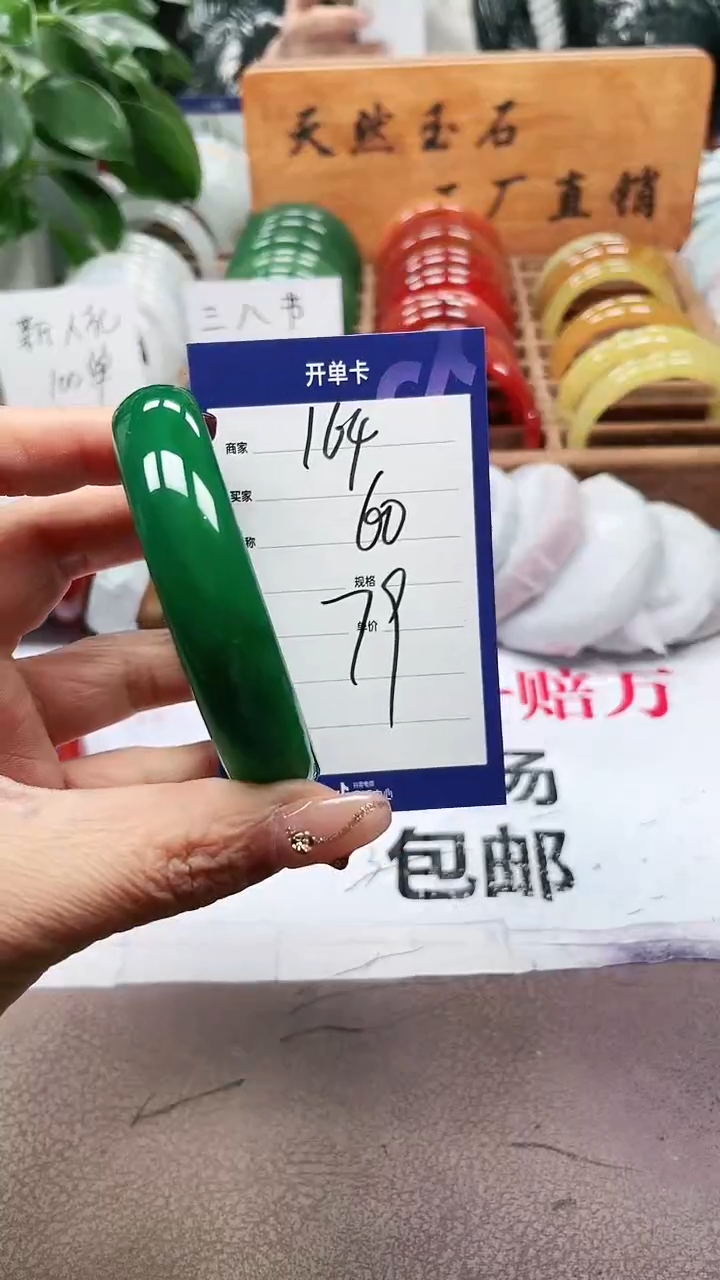 天然玉石
工厂直销
新人礼
100单
三八节
开单卡
商家 164
买家
称 60
规格
单价 79
抖音电商
一赔万
场
包邮